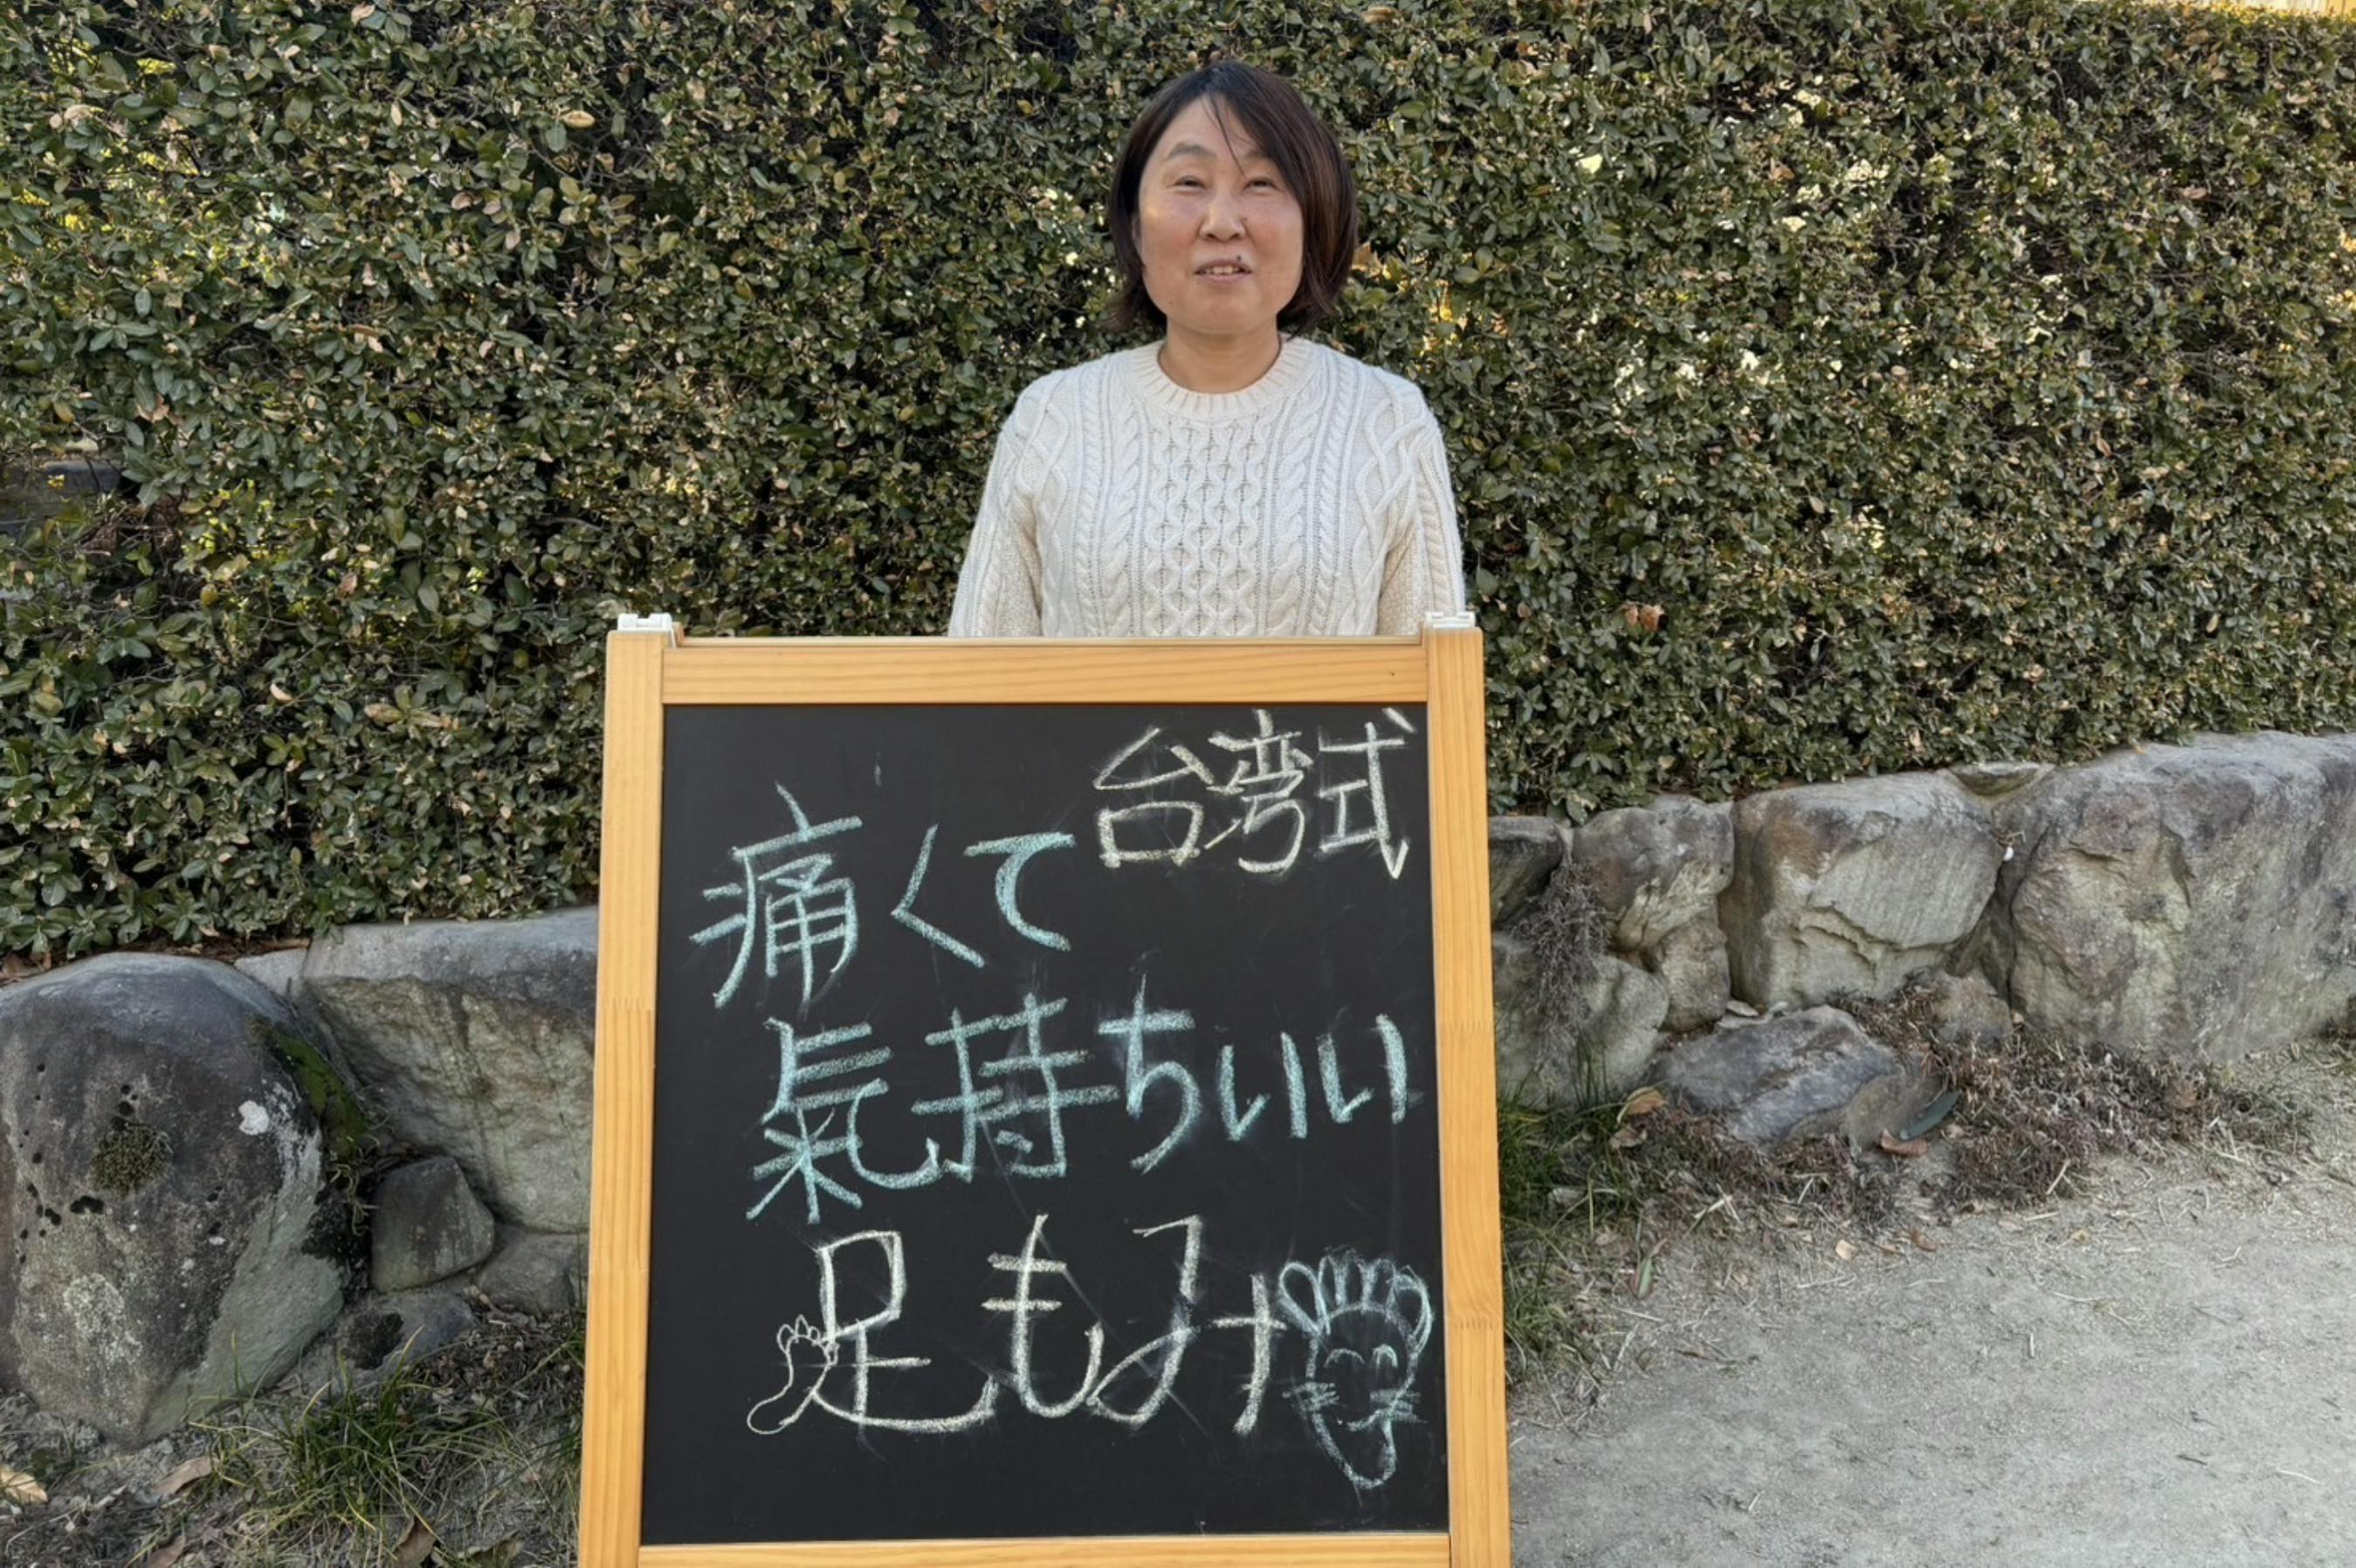 台湾式
痛くて
氣持ちいい
足もみ